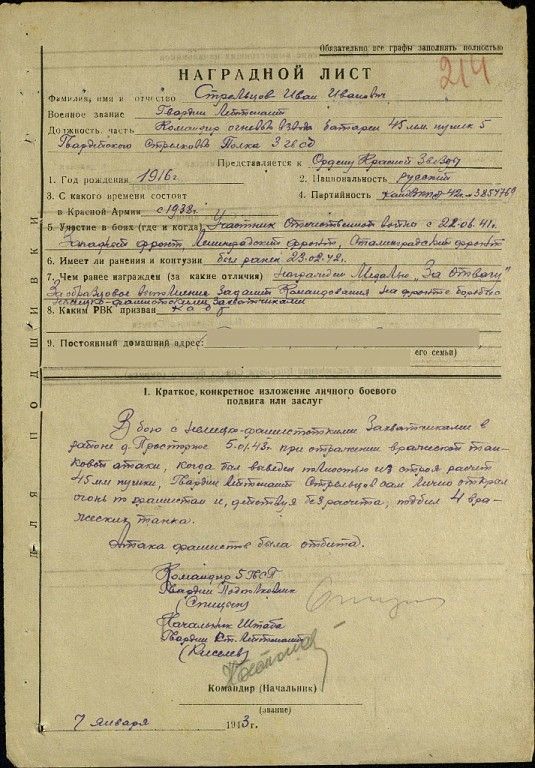 Обязательно все графы заполнять полностью
214
НАГРАДНОЙ ЛИСТ
Фамилия, имя и отчество Стрельцов Иван Иванович
Военное звание Гвардии Лейтенант
Должность часть Командир огневого взвода батареи 45 мм. пушек 5
Гвардейского Стрелкового Полка 3 гв сд
Представляется к Ордену Красной Звезды
1. Год рождения 1916г. 2. Национальность русский
3. С какого времени состоит
в Красной Армии с 1938г. 4. Партийность канд ВКП(б) 42г. №3854769
5. Участие в боях (где и когда) Участник Отечественной войны с 22.06.41г.
Западный фронт, Ленинградский фронт, Сталинградский фронт
6. Имеет ли ранения и контузии был ранен 23.02.42г.
7. Чем ранее награжден (за какие отличия) награжден Медалью "За отвагу"
За образцовое выполнение заданий Командования на фронте борьбы с
немецко-фашистскими захватчиками
8. Каким РВК призван
9. Постоянный домашний адрес:
его семьи)
I. Краткое, конкретное изложение личного боевого
подвига или заслуг
В бою с немецко-фашистскими Захватчиками в
районе д. Просторное 5.01.43г. при отражении вражеской тан-
ковой атаки, когда был выведен полностью из строя расчет
45 мм пушки, Гвардии лейтенант Стрельцов сам лично открыл
огонь по фашистам и, действуя без расчета, подбил 4 вра-
жеских танка.
Атака фашистов была отбита.
Командир 5 ГвСП
Гвардии Подполковник
(Спицын)
Начальник Штаба
Гвардии Ст. Лейтенант
(Киселев)
Командир (Начальник)
(звание)
7 января 1943г.
ДЛЯ ПОДШИВКИ